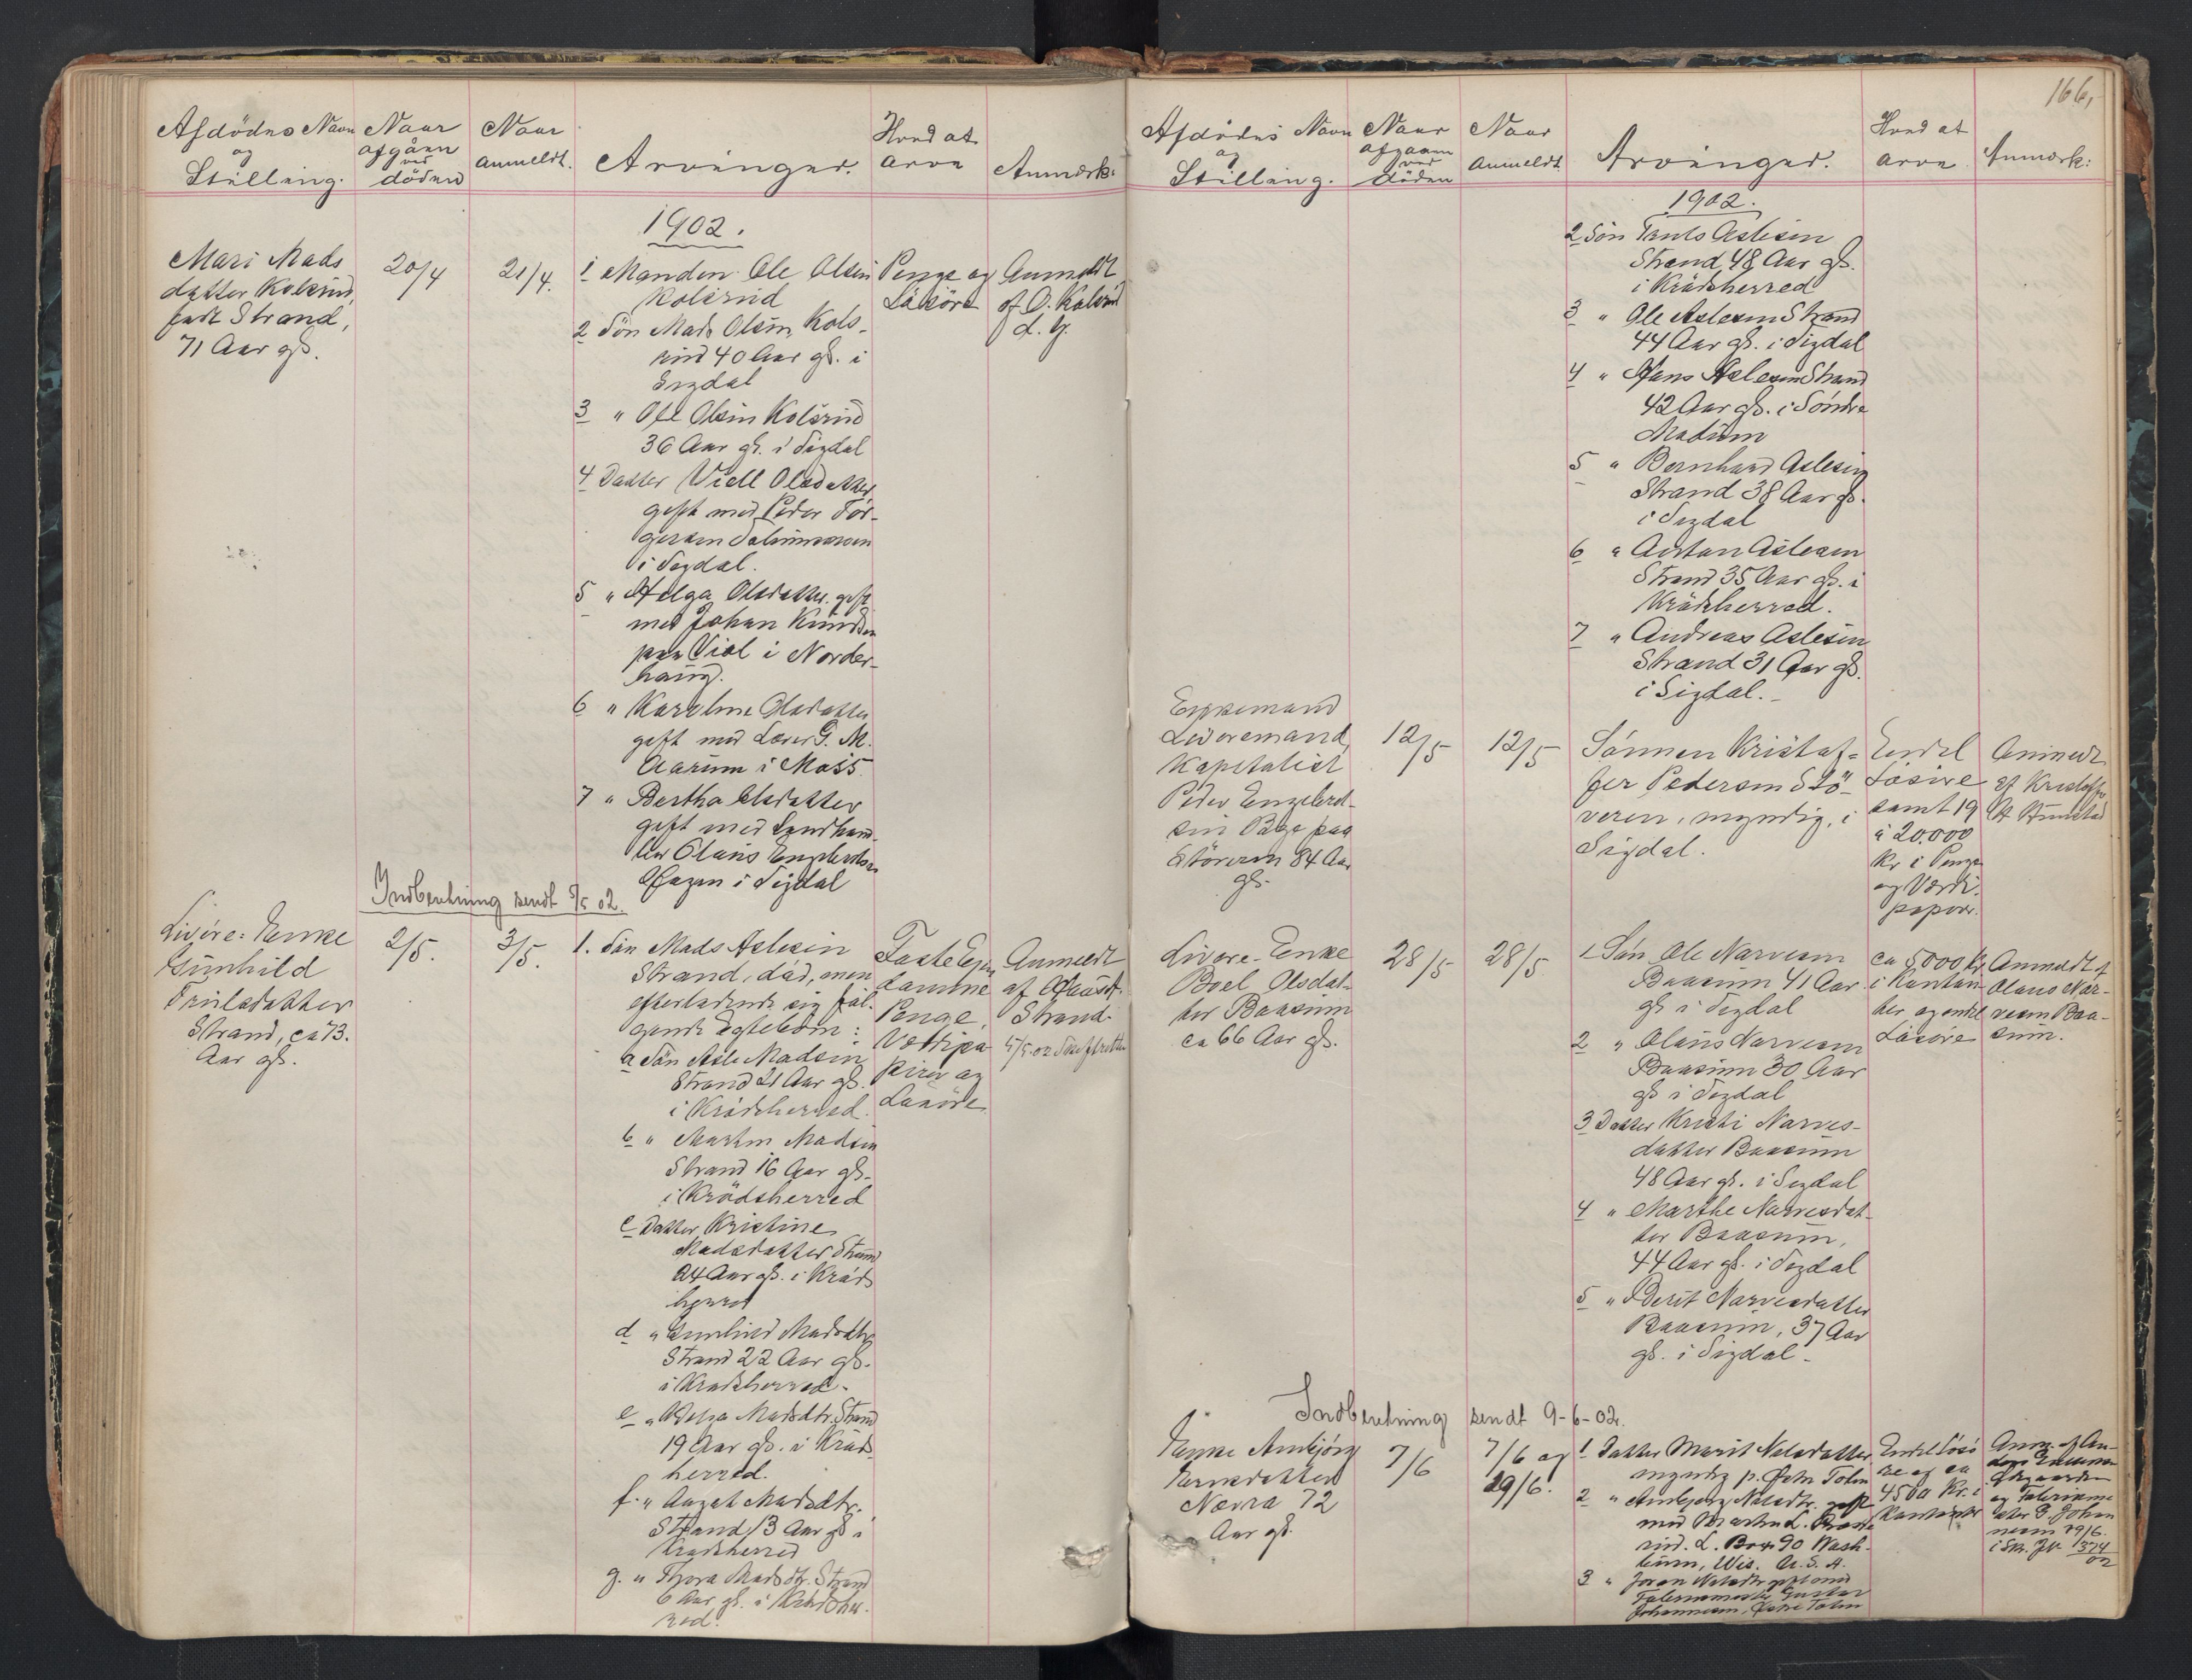 Afdödes Navn
og
Stilling.
Naar
afgåen
ved
döden
Naar
anmeldt.
Arvinger.
Hvad at
arve
Anmærk:
1902.
Mari Mads
datter Kolsrud,
født Strand,
71 Aar gl.
20/4
21/4.
1 Manden Ole Olsen
Kolsrud
2 Sön Mads Olsen Kols-
rud 40 Aar gl. i
Sigdal
3 " Ole Olsen Kolsrud
36 Aar gl. i Sigdal
4 Datter Olsdatter
gift med Peder Tor-
gersen
i Sigdal.
5 " Helga Olsdatter gift
med Johan Knudsen
paa Viol i Norder-
haug.
6 " Karoline Olsdatter
gift med Lærer G. M.
Aarum i Moss
7 " Bertha Olsdatter
gift med Landhand-
ler Olaus Engebretsen
i Sigdal
Penge og
Løsöre
Anmeldt
af O. Kolsrud
d. y.
Indberetning sendt 5/5 02.
Livöre-Enke
Gunhild
Trulsdatter
Strand, ca 73.
Aar gl.
2/5.
3/5.
1. Sön Mads Aslesen
Strand, död, men
efterladende sig föl-
gende Egtebörn:
a Sön Asle Madsen
Strand 21 Aar gl.
i Krödsherred.
b " Martin Madsen
Strand 16 Aar gl.
i Krödsherred
c Datter Kristine
Madsdatter Strand
24 Aar gl. i Kröds
herred
d " Gunhild Madsdtr
Strand 22 Aar gl.
i Krödsherred.
e " Helga Madsdtr. Strand
19 Aar gl. i Kröds
herred.
f. " Aagot Madsdtr.
Strand 13 Aar gl i
Krödsherred
g. " Thora Madsdtr. Strand
6 Aar gl. i Krödsher-
red.
Faste Ejen
domme
Penge,
Værdipa
pirer og
Lösöre
Anmeldt
af
Strand.
5/5.02 Skifteretten
166,
Afdödes Navn
og
Stilling.
Naar
afgaaen
ved
döden
Naar
Anmeldt
Arvinger.
Hvad at
arve
Anmærk:
1902.
2 Sön Truls Aslesen
Strand 48 Aar gl.
i Krödsherred
3 " Ole Aslesen Strand
44 Aar gl. i Sigdal
4 " Hans Aslesen Strand
42 Aar gl. i Söndre
Modum
5 " Bernhard Aslesen
Strand 38 Aar gl.
i Sigdal
6 " Anton Aslesen
Strand 35 Aar gl. i
Krödsherred.
7 " Andreas Aslesen
Strand 31 Aar gl.
i Sigdal.
Enkemand
Livöremand,
Kapitalist
Peder Engebret-
sen paa
Stöveren 84 Aar
gl.
12/5
12/5
Sönnen Kristof-
fer Pedersen Stö-
veren, myndig, i
Sigdal.
Endel
Lösöre
samt 19
à 20.000
Kr i Penge
og Værdi-
papirer.
Anmeldt
af Kristoffer
Livöre-Enke
Boel Olsdat-
ter Baasum
ca 66 Aar gl.
28/5
28/5.
1 Sön Ole Narvesen
Baasum 41 Aar
gl i Sigdal
2 " Olaus Narvesen
Baasum 30 Aar
gl i Sigdal
3 Datter Kristi Narves-
datter Baasum
48 Aar gl. i Sigdal
4 " Marthe Narvesdat-
ter Baasum,
44 Aar gl. i Sigdal
5 " Berit Narvesdatter
Baasum, 37 Aar
gl. i Sigdal.
ca 5000 Kr
i Kontan
ter og endel
Lösöre
Anmeldt af
Olaus Nar-
vesen Baa-
sum.
Indberetning sendt 9-6-02.
Enke Ambjörg
Nerra 72
Aar gl.
7/6
7/6 og
29/6.
1 Datter Marit Nelsdatter
myndig p.
2 " Ambjörg Nelsdtr. gift
med Martin L.
rud. L. Box 90 Wash-
burn, Wis. U.S.A.
3 " Joran Nelsdtr gift med
Gustav
Johannesen,
Endel Lösö
re og ca
4500 Kr. i
Kontanter
Anm. af An-
ders
og
G. Johan
nesen 29/6.
374
02